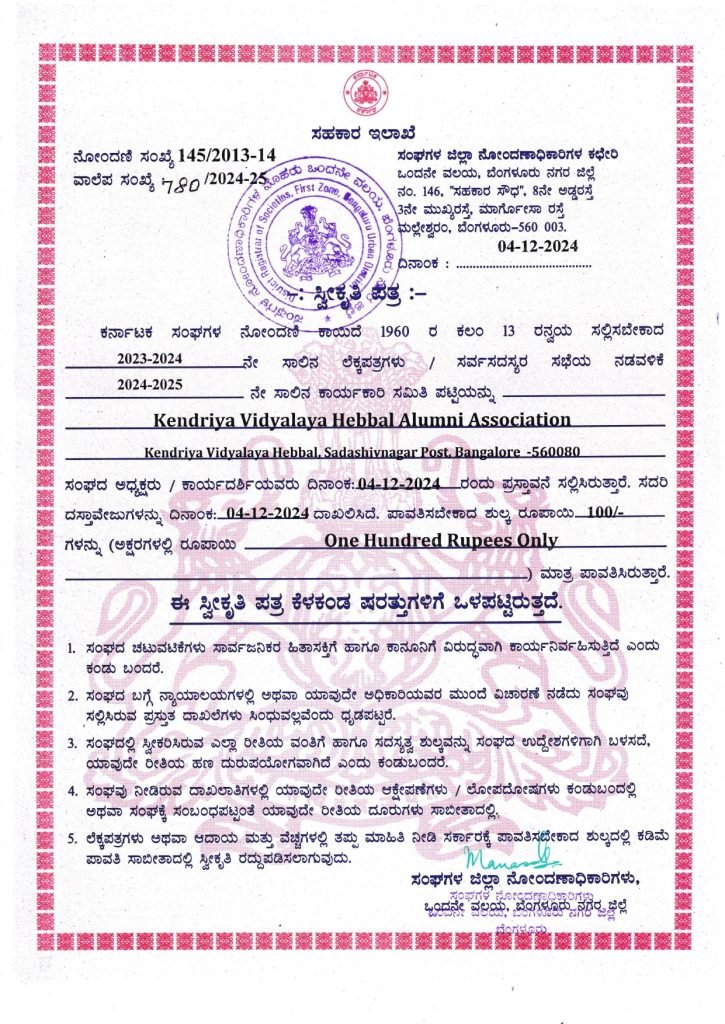 ಸಹಕಾರ ಇಲಾಖೆ
ನೋಂದಣಿ ಸಂಖ್ಯೆ 145/2013-14
ವಾಲೆಪ ಸಂಖ್ಯೆ 780 /2024-25
ಸಂಘಗಳ ಜಿಲ್ಲಾ ನೋಂದಣಾಧಿಕಾರಿಗಳ ಕಛೇರಿ
ಒಂದನೇ ವಲಯ, ಬೆಂಗಳೂರು ನಗರ ಜಿಲ್ಲೆ
ನಂ. 146, "ಸಹಕಾರ ಸೌಧ", 8ನೇ ಅಡ್ಡರಸ್ತೆ
3ನೇ ಮುಖ್ಯರಸ್ತೆ, ಮಾರ್ಗೋಸಾ ರಸ್ತೆ
ಮಲ್ಲೇಶ್ವರಂ, ಬೆಂಗಳೂರು-560 003.
04-12-2024
ದಿನಾಂಕ : ........................................
District Registrar of Societies, First Zone, Bengaluru Urban District
-: ಸ್ವೀಕೃತಿ ಪತ್ರ :-
ಕರ್ನಾಟಕ ಸಂಘಗಳ ನೋಂದಣಿ ಕಾಯಿದೆ 1960 ರ ಕಲಂ 13 ರನ್ವಯ ಸಲ್ಲಿಸಬೇಕಾದ
2023-2024 ನೇ ಸಾಲಿನ ಲೆಕ್ಕಪತ್ರಗಳು / ಸರ್ವಸದಸ್ಯರ ಸಭೆಯ ನಡವಳಿಕೆ
2024-2025 ನೇ ಸಾಲಿನ ಕಾರ್ಯಕಾರಿ ಸಮಿತಿ ಪಟ್ಟಿಯನ್ನು
Kendriya Vidyalaya Hebbal Alumni Association
Kendriya Vidyalaya Hebbal, Sadashivnagar Post, Bangalore -560080
ಸಂಘದ ಅಧ್ಯಕ್ಷರು / ಕಾರ್ಯದರ್ಶಿಯವರು ದಿನಾಂಕ: 04-12-2024 ರಂದು ಪ್ರಸ್ತಾವನೆ ಸಲ್ಲಿಸಿರುತ್ತಾರೆ. ಸದರಿ
ದಸ್ತಾವೇಜುಗಳನ್ನು ದಿನಾಂಕ: 04-12-2024 ದಾಖಲಿಸಿದೆ. ಪಾವತಿಸಬೇಕಾದ ಶುಲ್ಕ ರೂಪಾಯಿ 100/-
ಗಳನ್ನು (ಅಕ್ಷರಗಳಲ್ಲಿ ರೂಪಾಯಿ One Hundred Rupees Only
) ಮಾತ್ರ ಪಾವತಿಸಿರುತ್ತಾರೆ.
ಈ ಸ್ವೀಕೃತಿ ಪತ್ರ ಕೆಳಕಂಡ ಷರತ್ತುಗಳಿಗೆ ಒಳಪಟ್ಟಿರುತ್ತದೆ.
1. ಸಂಘದ ಚಟುವಟಿಕೆಗಳು ಸಾರ್ವಜನಿಕರ ಹಿತಾಸಕ್ತಿಗೆ ಹಾಗೂ ಕಾನೂನಿಗೆ ವಿರುದ್ಧವಾಗಿ ಕಾರ್ಯನಿರ್ವಹಿಸುತ್ತಿದೆ ಎಂದು
ಕಂಡು ಬಂದರೆ.
2. ಸಂಘದ ಬಗ್ಗೆ ನ್ಯಾಯಾಲಯಗಳಲ್ಲಿ ಅಥವಾ ಯಾವುದೇ ಅಧಿಕಾರಿಯವರ ಮುಂದೆ ವಿಚಾರಣೆ ನಡೆದು ಸಂಘವು
ಸಲ್ಲಿಸಿರುವ ಪ್ರಸ್ತುತ ದಾಖಲೆಗಳು ಸಿಂಧುವಲ್ಲವೆಂದು ಧೃಡಪಟ್ಟರೆ.
3. ಸಂಘದಲ್ಲಿ ಸ್ವೀಕರಿಸಿರುವ ಎಲ್ಲಾ ರೀತಿಯ ವಂತಿಗೆ ಹಾಗೂ ಸದಸ್ಯತ್ವ ಶುಲ್ಕವನ್ನು ಸಂಘದ ಉದ್ದೇಶಗಳಿಗಾಗಿ ಬಳಸದೆ,
ಯಾವುದೇ ರೀತಿಯ ಹಣ ದುರುಪಯೋಗವಾಗಿದೆ ಎಂದು ಕಂಡುಬಂದರೆ.
4. ಸಂಘವು ನೀಡಿರುವ ದಾಖಲಾತಿಗಳಲ್ಲಿ ಯಾವುದೇ ರೀತಿಯ ಆಕ್ಷೇಪಣೆಗಳು / ಲೋಪದೋಷಗಳು ಕಂಡುಬಂದಲ್ಲಿ
ಅಥವಾ ಸಂಘಕ್ಕೆ ಸಂಬಂಧಪಟ್ಟಂತೆ ಯಾವುದೇ ರೀತಿಯ ದೂರುಗಳು ಸಾಬೀತಾದಲ್ಲಿ,
5. ಲೆಕ್ಕಪತ್ರಗಳು ಅಥವಾ ಆದಾಯ ಮತ್ತು ವೆಚ್ಚಗಳಲ್ಲಿ ತಪ್ಪು ಮಾಹಿತಿ ನೀಡಿ ಸರ್ಕಾರಕ್ಕೆ ಪಾವತಿಸಬೇಕಾದ ಶುಲ್ಕದಲ್ಲಿ ಕಡಿಮೆ
ಪಾವತಿ ಸಾಬೀತಾದಲ್ಲಿ ಸ್ವೀಕೃತಿ ರದ್ದುಪಡಿಸಲಾಗುವುದು.
ಸಂಘಗಳ ಜಿಲ್ಲಾ ನೋಂದಣಾಧಿಕಾರಿಗಳು,
ಸಂಘಗಳ ಜಿಲ್ಲಾ ನೋಂದಣಾಧಿಕಾರಿಗಳು
ಒಂದನೇ ವಲಯ, ಬೆಂಗಳೂರು ನಗರ ಜಿಲ್ಲೆ
ಒಂದನೇ ವಲಯ, ಬೆಂಗಳೂರು ನಗರ ಜಿಲ್ಲೆ
ಬೆಂಗಳೂರು